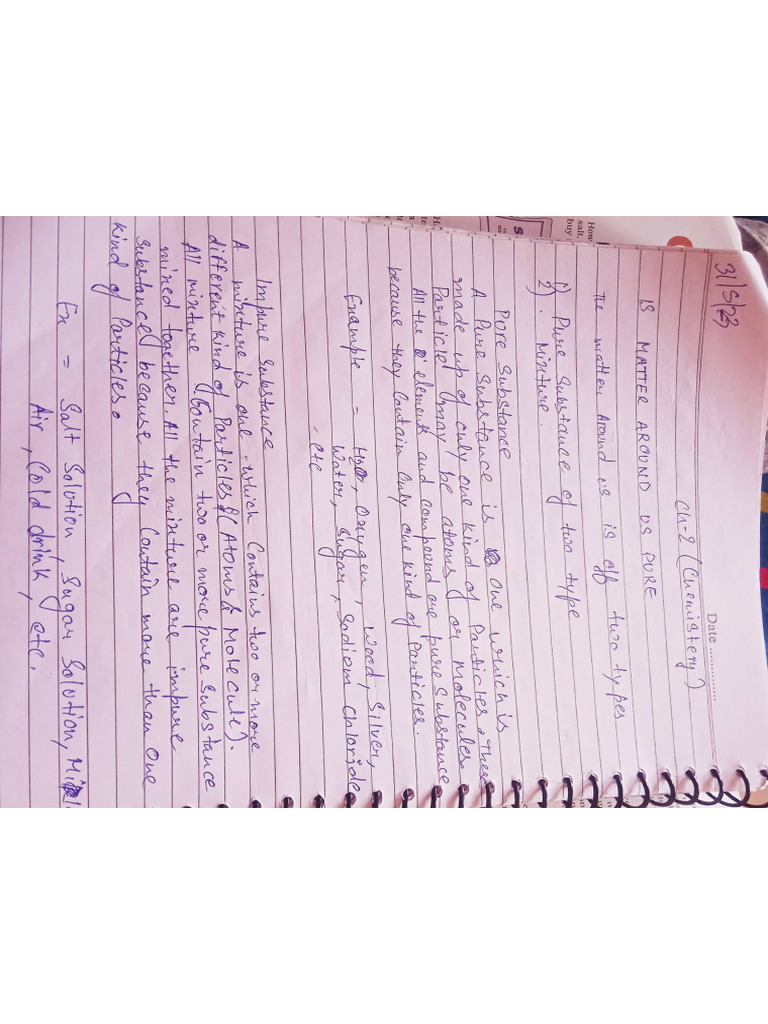 Date ..............
31/5/23
Ch-2 (Chemistery)
IS MATTER AROUND US PURE
The matter Around us is off two types
1) Pure Substance of two type
2). Mixture.
Pure Substance
A Pure Substance is one which is
made up of only one kind of Particles, These
Particle (may be atoms) or molecules
All the element and compound are pure Substance
because they Contain Only one kind of Particles.
Example = H2O, Oxygen, Wood, Silver,
Water, Sugar, Sodium Chloride
, etc
Impure Substance
A mixture is one which Contains two or more
different kind of Particles (Atoms & Molecule).
All mixture Contain two or more pure Substance
mixed together. All the mixture are impure
Substance because they Contain more than One
kind of Particles.
Ex = Salt Solution, Sugar Solution,
Air, Cold drink, etc.
How
salt.
buy